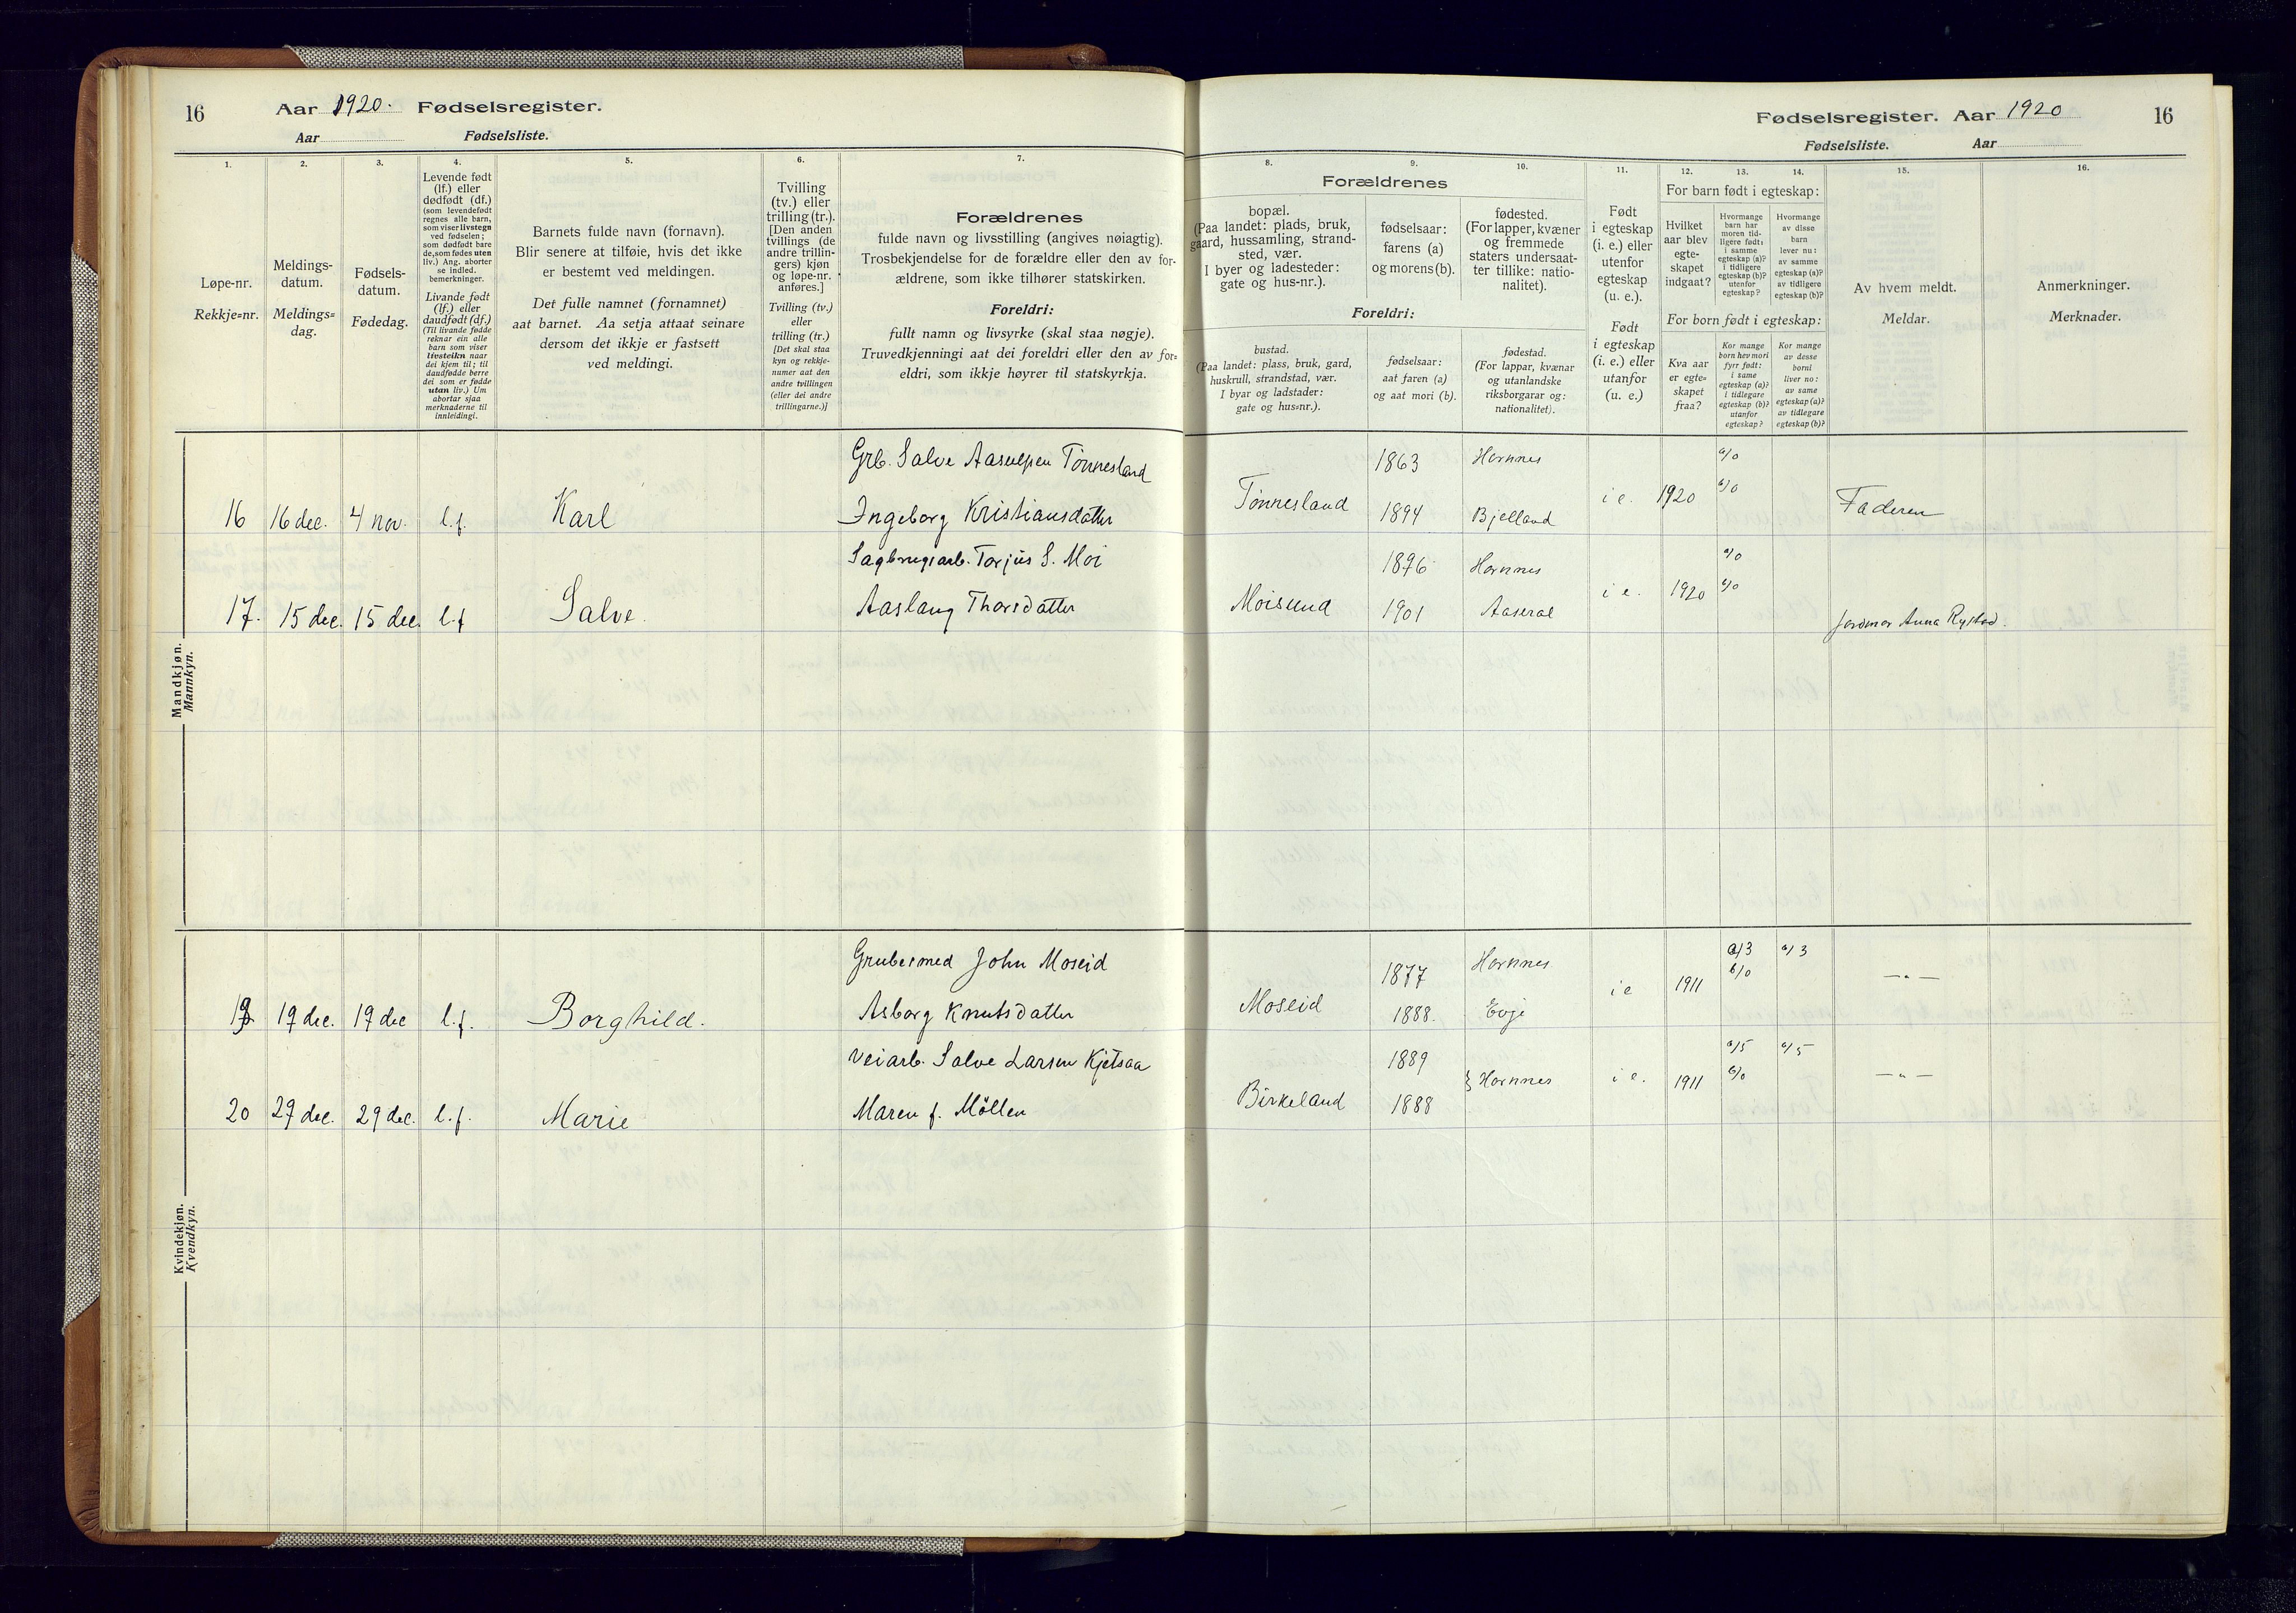 16
Aar 1920. Fødselsregister.
Aar
Fødselsliste.
1.
2.
3.
4.
5.
6.
7.
Løpe-nr.
Rekkje=nr.
Meldings-
datum.
Meldings=
dag.
Fødsels-
datum.
Fødedag.
Levende født
(lf.) eller
dødfødt (df.)
(som levendefødt
regnes alle barn,
som viser livstegn
ved fødselen;
som dødfødt bare
de, som fødes uten
liv.) Ang. aborter
se indled.
bemerkninger.
Livande født
(lf.) eller
daudfødt (df.)
(Til livande fødde
reknar ein alle
barn som viser
livsteikn naar
dei kjem til; til
daudfødde berre
dei som er fødde
utan liv.) Um
abortar sjaa
merknaderne til
innleidingi.
Barnets fulde navn (fornavn).
Blir senere at tilføie, hvis det ikke
er bestemt ved meldingen.
Det fulle namnet (fornamnet)
aat barnet. Aa setja attaat seinare
dersom det ikkje er fastsett
ved meldingi.
Tvilling
(tv.) eller
trilling (tr.).
[Den anden
tvillings (de
andre trillin-
gers) kjøn
og løpe-nr.
anføres.]
Tvilling (tv.)
eller
trilling (tr.)
[Det skal staa
kyn og rekkje-
numer aat den
andre tvillingen
(eller dei andre
trillingarne.)]
Forældrenes
fulde navn og livsstilling (angives nøiagtig).
Trosbekjendelse for de forældre eller den av for-
ældrene, som ikke tilhører statskirken.
Foreldri:
fullt namn og livsyrke (skal staa nøgje).
Truvedkjenningi aat dei foreldri eller den av for=
eldri, som ikkje høyrer til statskyrkja.
Mandkjøn.
Mannkyn.
Grb. Salve Aasulsen Tønnesland
16 16 dec. 4 nov. l.f. Karl Ingeborg Kristiansdatter
Sagbrugsarb. Torjus S. Moi
17. 15 dec. 15 dec. l.f Salve. Aaslaug Thorsdatter
Kvindekjøn.
Kvendkyn.
Grubesmed John Moseid
19 19 dec. 19 dec l.f. Borghild. Asborg Knutsdatter
Veiarb. Salve Larsen Kjetsaa
20 29 dec. 29 dec. l.f. Marie Maren f. Möllen
Fødselsregister. Aar 1920
16
Fødselsliste.
Aar
8.
9.
10.
11.
12.
13.
14.
15.
16.
Forældrenes
bopæl.
(Paa landet: plads, bruk,
gaard, hussamling, strand-
sted, vær.
I byer og ladesteder:
gate og hus-nr.).
fødselsaar:
farens (a)
og morens (b).
fødested.
(For lapper, kvæner
og fremmede
staters undersaat-
ter tillike: natio-
nalitet).
Foreldri:
bustad.
(Paa landet: plass, bruk, gard,
huskrull, strandstad, vær.
I byar og ladstader:
gate og hus=nr.).
fødselsaar:
aat faren (a)
og aat mori (b).
fødestad.
(For lappar, kvænar
og utanlandske
riksborgarar og:
nationalitet).
Født
i egteskap
(i. e.) eller
utenfor
egteskap
(u. e.).
Født
i egteskap
(i. e.) eller
utanfor
(u. e.)
For barn født i egteskap:
Hvilket
aar blev
egte-
skapet
indgaat?
Hvormange
barn har
moren tid-
ligere født:
i samme
egteskap (a)?
i tidligere
egteskap (b)?
utenfor
egteskap?
Hvormange
av disse
barn
lever nu:
av samme
egteskap (a)?
av tidligere
egteskap (b)?
For born født i egteskap:
Kva aar
er egte=
skapet
fraa?
Kor mange
born hev mori
fyrr født:
i same
egteskap (a)?
i tidlegare
egteskap (b)?
utanfor
egteskap?
Kor mange
av desse
borni
liver no:
av same
egteskap (a)?
av tidlegare
egteskap (b)?
Av hvem meldt.
Meldar.
Anmerkninger.
Merknader.
1863 Hornnes a/0
Tønnesland 1894 Bjelland i e. 1920 b/0 Faderen
1896 Hornnes a/0
Moisund 1901 Aaseral i e. 1920 b/0 Jordmor Anna Rysstad.
1877 Hornnes a/3 a/3
Moseid 1888. Evje i e 1911 b/0 —"—
1889 a/5 a/5
Birkeland 1888 } Hornnes i e. 1911 b/0 —"—